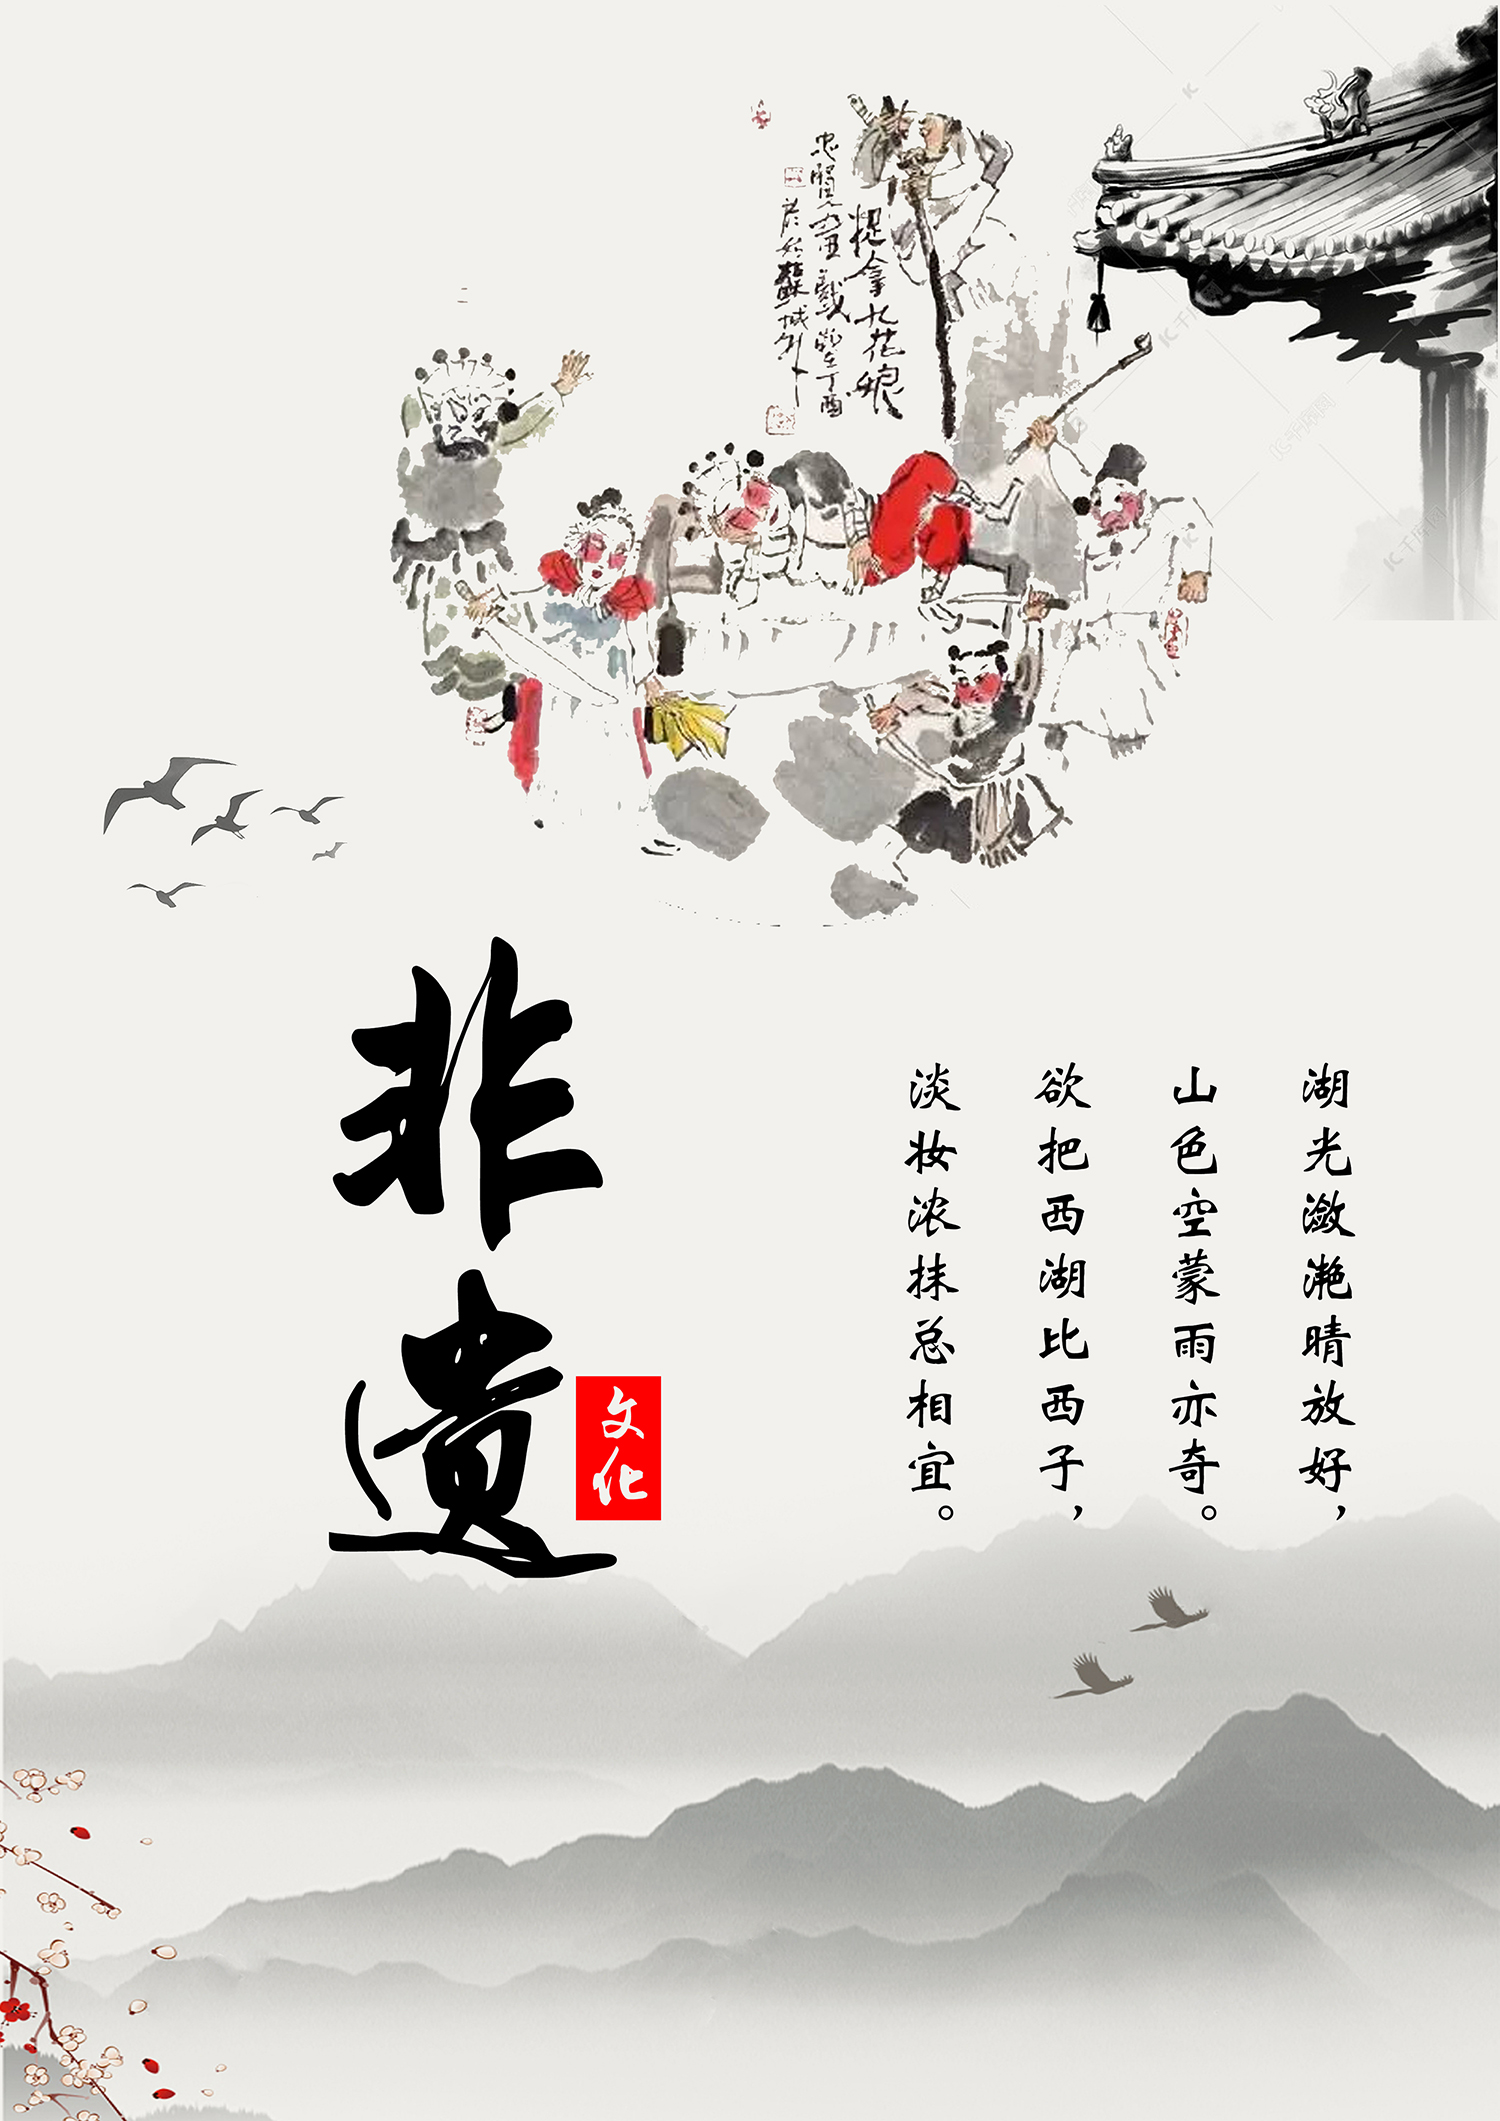 捉拿九花娘
非遗
文化
湖光潋滟晴放好，
山色空蒙雨亦奇。
欲把西湖比西子，
淡妆浓抹总相宜。